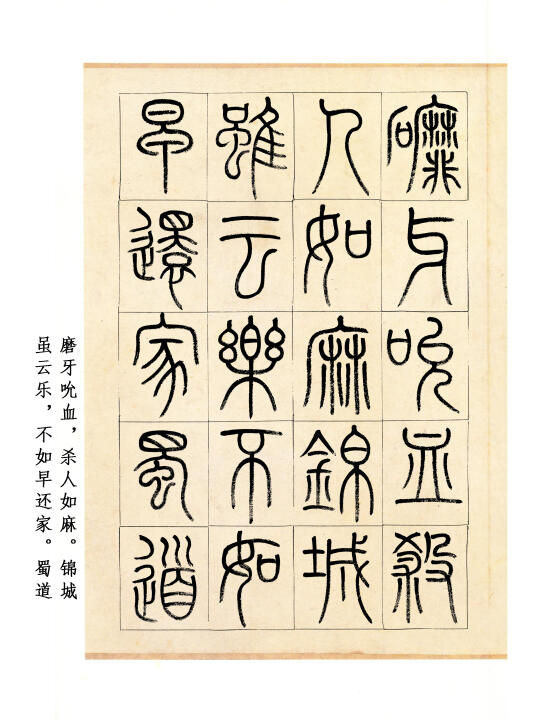 䃺牙吮血殺
人如麻錦城
雖云樂不如
早還家蜀道
磨牙吮血，杀人如麻。锦城
虽云乐，不如早还家。蜀道